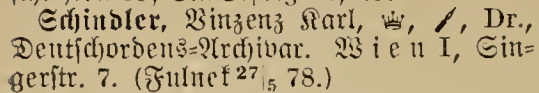 Schindler, Vinzenz Karl, ♕, /, Dr.,
Deutschordens=Archivar. Wien I, Sin=
gerstr. 7. (Fulnek 27|5 78.)